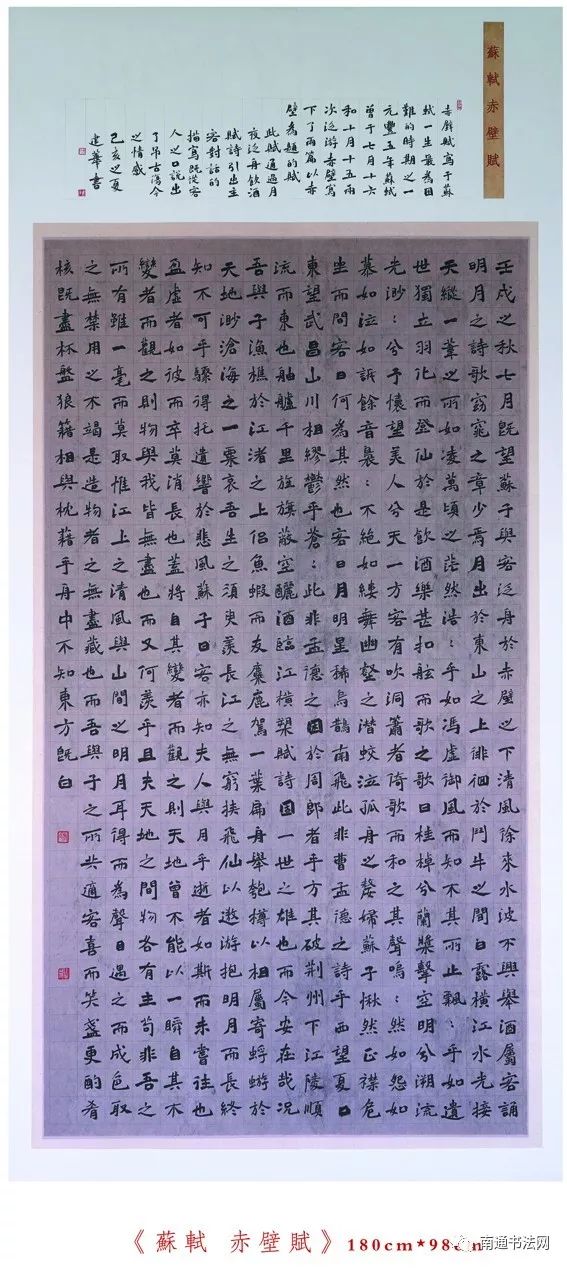 蘇軾赤壁賦
赤壁賦寫于蘇
軾一生最為困
難的時期之一
元豐五年蘇軾
曾于七月十六
和十月十五兩
次泛游赤壁寫
下了兩篇以赤
壁為題的賦
此賦通過月
夜泛舟飲酒
賦詩引出主
客對話的
描寫既從客
人之口說出
了吊古傷今
之情感
己亥之夏
建華書
壬戌之秋七月既望蘇子與客泛舟於赤壁之下清風徐來水波不興舉酒屬客誦
明月之詩歌窈窕之章少焉月出於東山之上徘徊於鬥牛之間白露橫江水光接
天縱一葦之所如凌萬頃之茫然浩：乎如馮虛御風而知不其所止飄：乎如遺
世獨立羽化而登仙於是飲酒樂甚扣舷而歌之歌曰桂棹兮蘭槳擊空明兮溯流
光渺：兮予懷望美人兮天一方客有吹洞簫者倚歌而和之其聲嗚：然如怨如
慕如泣如訴餘音裊：不絕如縷舞幽壑之潛蛟泣孤舟之嫠婦蘇子愀然正襟危
坐而問客曰何為其然也客曰月明星稀烏鵲南飛此非曹孟德之詩乎西望夏口
東望武昌山川相繆鬱乎蒼：此非孟德之困於周郎者乎方其破荊州下江陵順
流而東也舳艫千里旌旗蔽空釃酒臨江橫槊賦詩固一世之雄也而今安在哉況
吾與子漁樵於江渚之上侶魚蝦而友麋鹿駕一葉扁舟舉匏樽以相屬寄蜉蝣於
天地渺滄海之一粟哀吾生之須臾羨長江之無窮挾飛仙以遨游抱明月而長終
知不可乎驟得托遺響於悲風蘇子曰客亦知夫人與月乎逝者如斯而未嘗往也
盈虛者如彼而卒莫消長也蓋將自其變者而觀之則天地曾不能以一瞬自其不
變者而觀之則物與我皆無盡也而又何羨乎且夫天地之間物各有主苟非吾之
所有雖一毫而莫取惟江上之清風與山間之明月耳得而為聲目遇之而成色取
之無禁用之不竭是造物者之無盡藏也而吾與子之所共適客喜而笑盞更酌肴
核既盡杯盤狼籍相與枕藉乎舟中不知東方既白
《蘇軾 赤壁賦》180cm*98cm
南通书法网